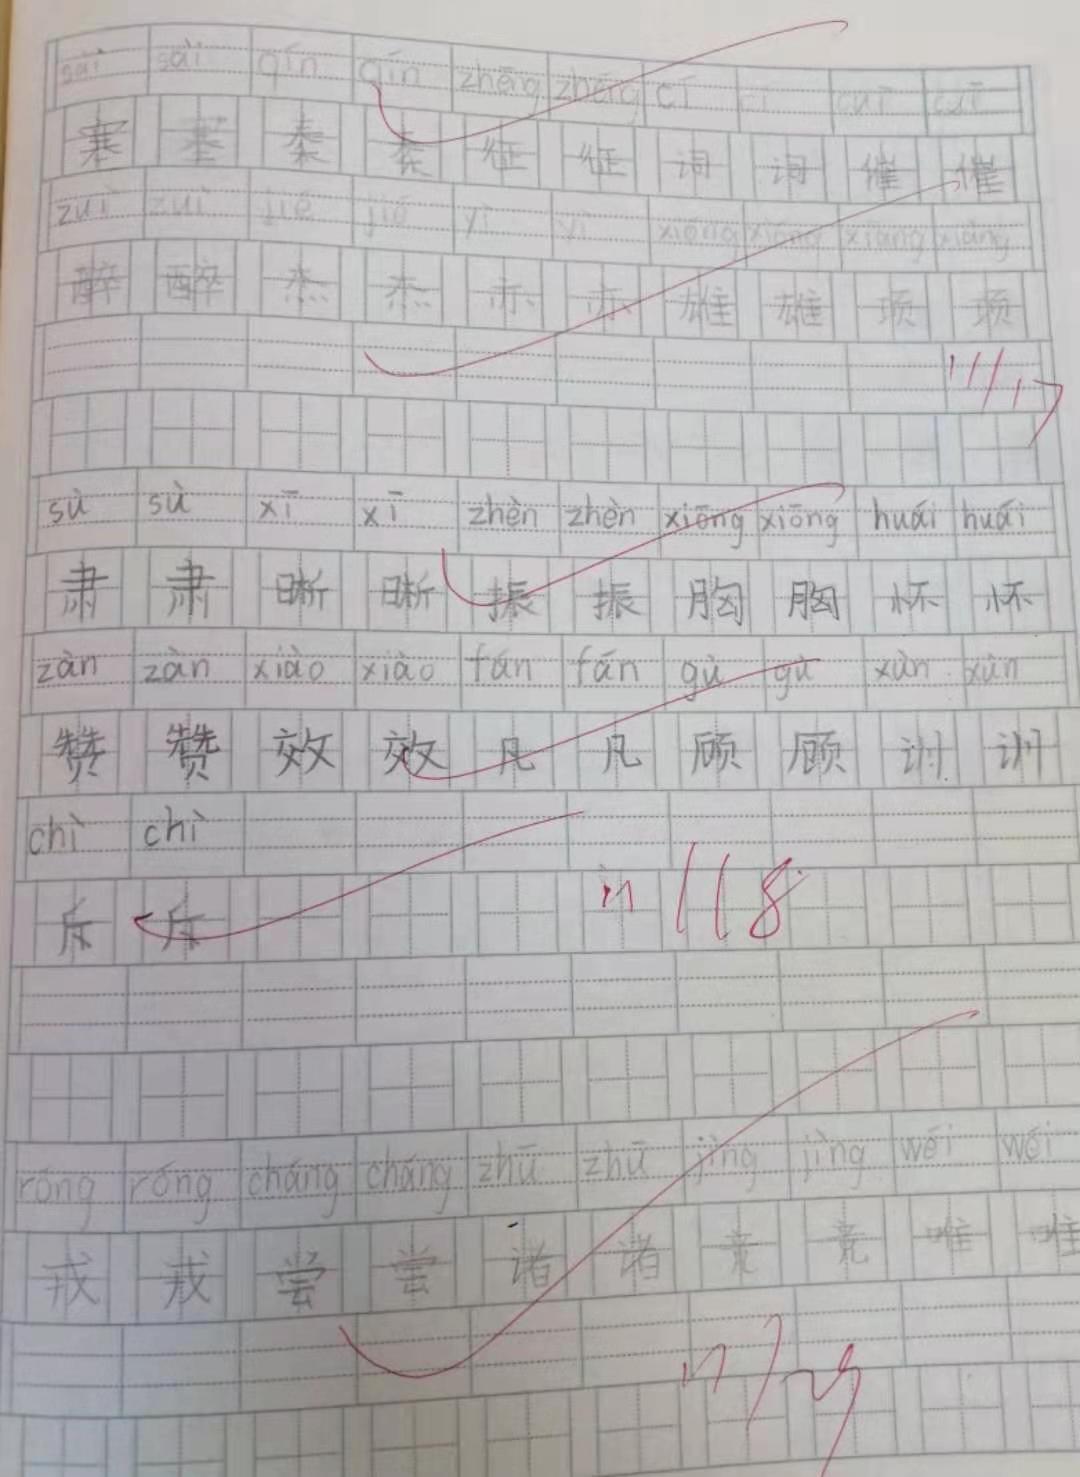 sài sài qín qín zhēng zhēng cí cí cuī cuī
塞 塞 秦 秦 征 征 词 词 催 催
zuì zuì jié jié yì yì xióng xióng xiàng xiàng
醉 醉 杰 杰 亦 亦 雄 雄 项 项
sù sù xī xī zhèn zhèn xiōng xiōng huái huái
肃 肃 晰 晰 振 振 胸 胸 怀 怀
zàn zàn xiào xiào fán fán gù gù xùn xùn
赞 赞 效 效 凡 凡 顾 顾 训 训
chì chì
斥 斥
118
róng róng cháng cháng zhū zhū jìng jìng wéi wéi
戎 戎 尝 尝 诸 诸 竞 竞 唯 唯